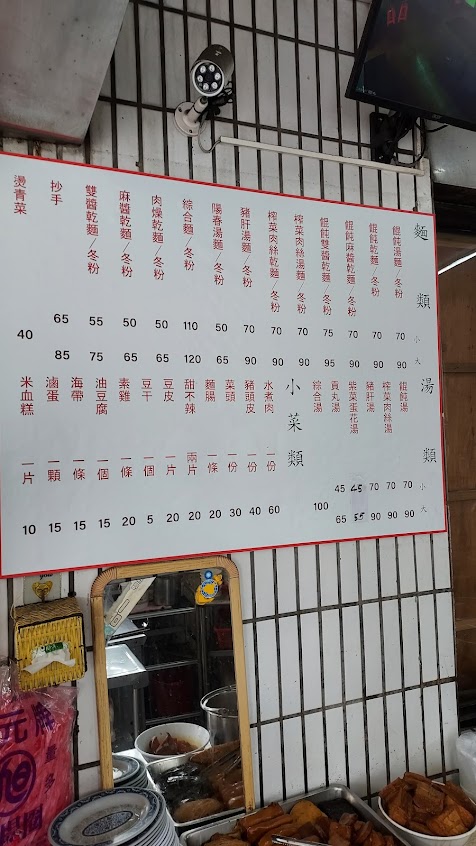 麵類 小 大
餛飩湯麵/冬粉 70 90
餛飩乾麵/冬粉 70 90
餛飩麻醬乾麵/冬粉 70 90
餛飩雙醬乾麵/冬粉 75 95
榨菜肉絲湯麵/冬粉 70 90
榨菜肉絲乾麵/冬粉 70 90
豬肝湯麵/冬粉 70 90
陽春湯麵/冬粉 50 65
綜合麵/冬粉 110 120
肉燥乾麵/冬粉 50 65
麻醬乾麵/冬粉 50 65
雙醬乾麵/冬粉 55 75
抄手 65 85
燙青菜 40
湯類 小 大
餛飩湯 70 90
榨菜肉絲湯 70 90
豬肝湯 70 90
紫菜蛋花湯 45 55
貢丸湯 45 65
綜合湯 100
小菜類
水煮肉 一份 60
豬頭皮 一份 40
菜頭 一份 30
麵腸 一條 20
甜不辣 兩片 20
豆皮 一片 20
豆干 一個 5
素雞 一條 20
油豆腐 一個 15
海帶 一條 15
滷蛋 一顆 15
米血糕 一片 10
元
旭